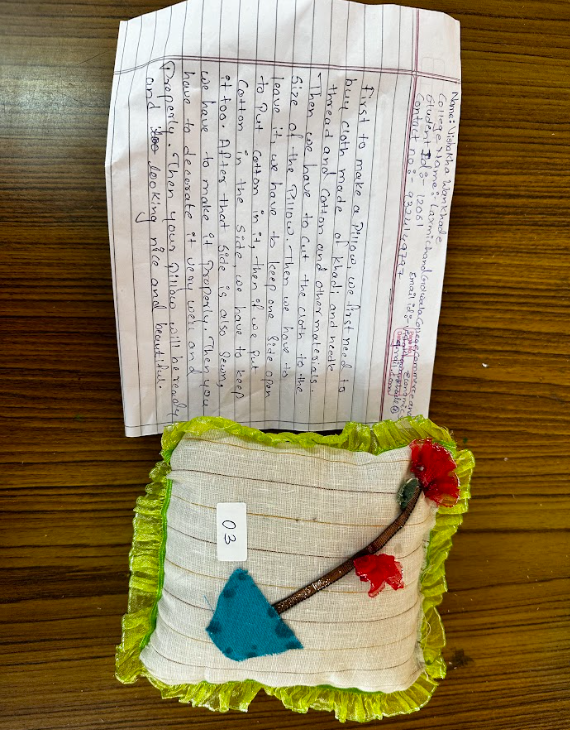 College Name:- Karmichand
Student Id:- 12051
Contact no:-
Email id:-
First to make a Pillow, we first need to
buy cloth made of khadi and need
thread and Cotton and other materials.
Then we have to cut the cloth to the
Size of the Pillow. Then we have to
leave it, we have to keep one Side open
to Put Cotton in it, then if we put
Cotton in the side, we have to keep
it too. After that Side is also Sewn,
we have to make it Properly. Then you
have to decorate it very well and
Properly. Then your pillow will be ready
and looking nice and beautiful.
03